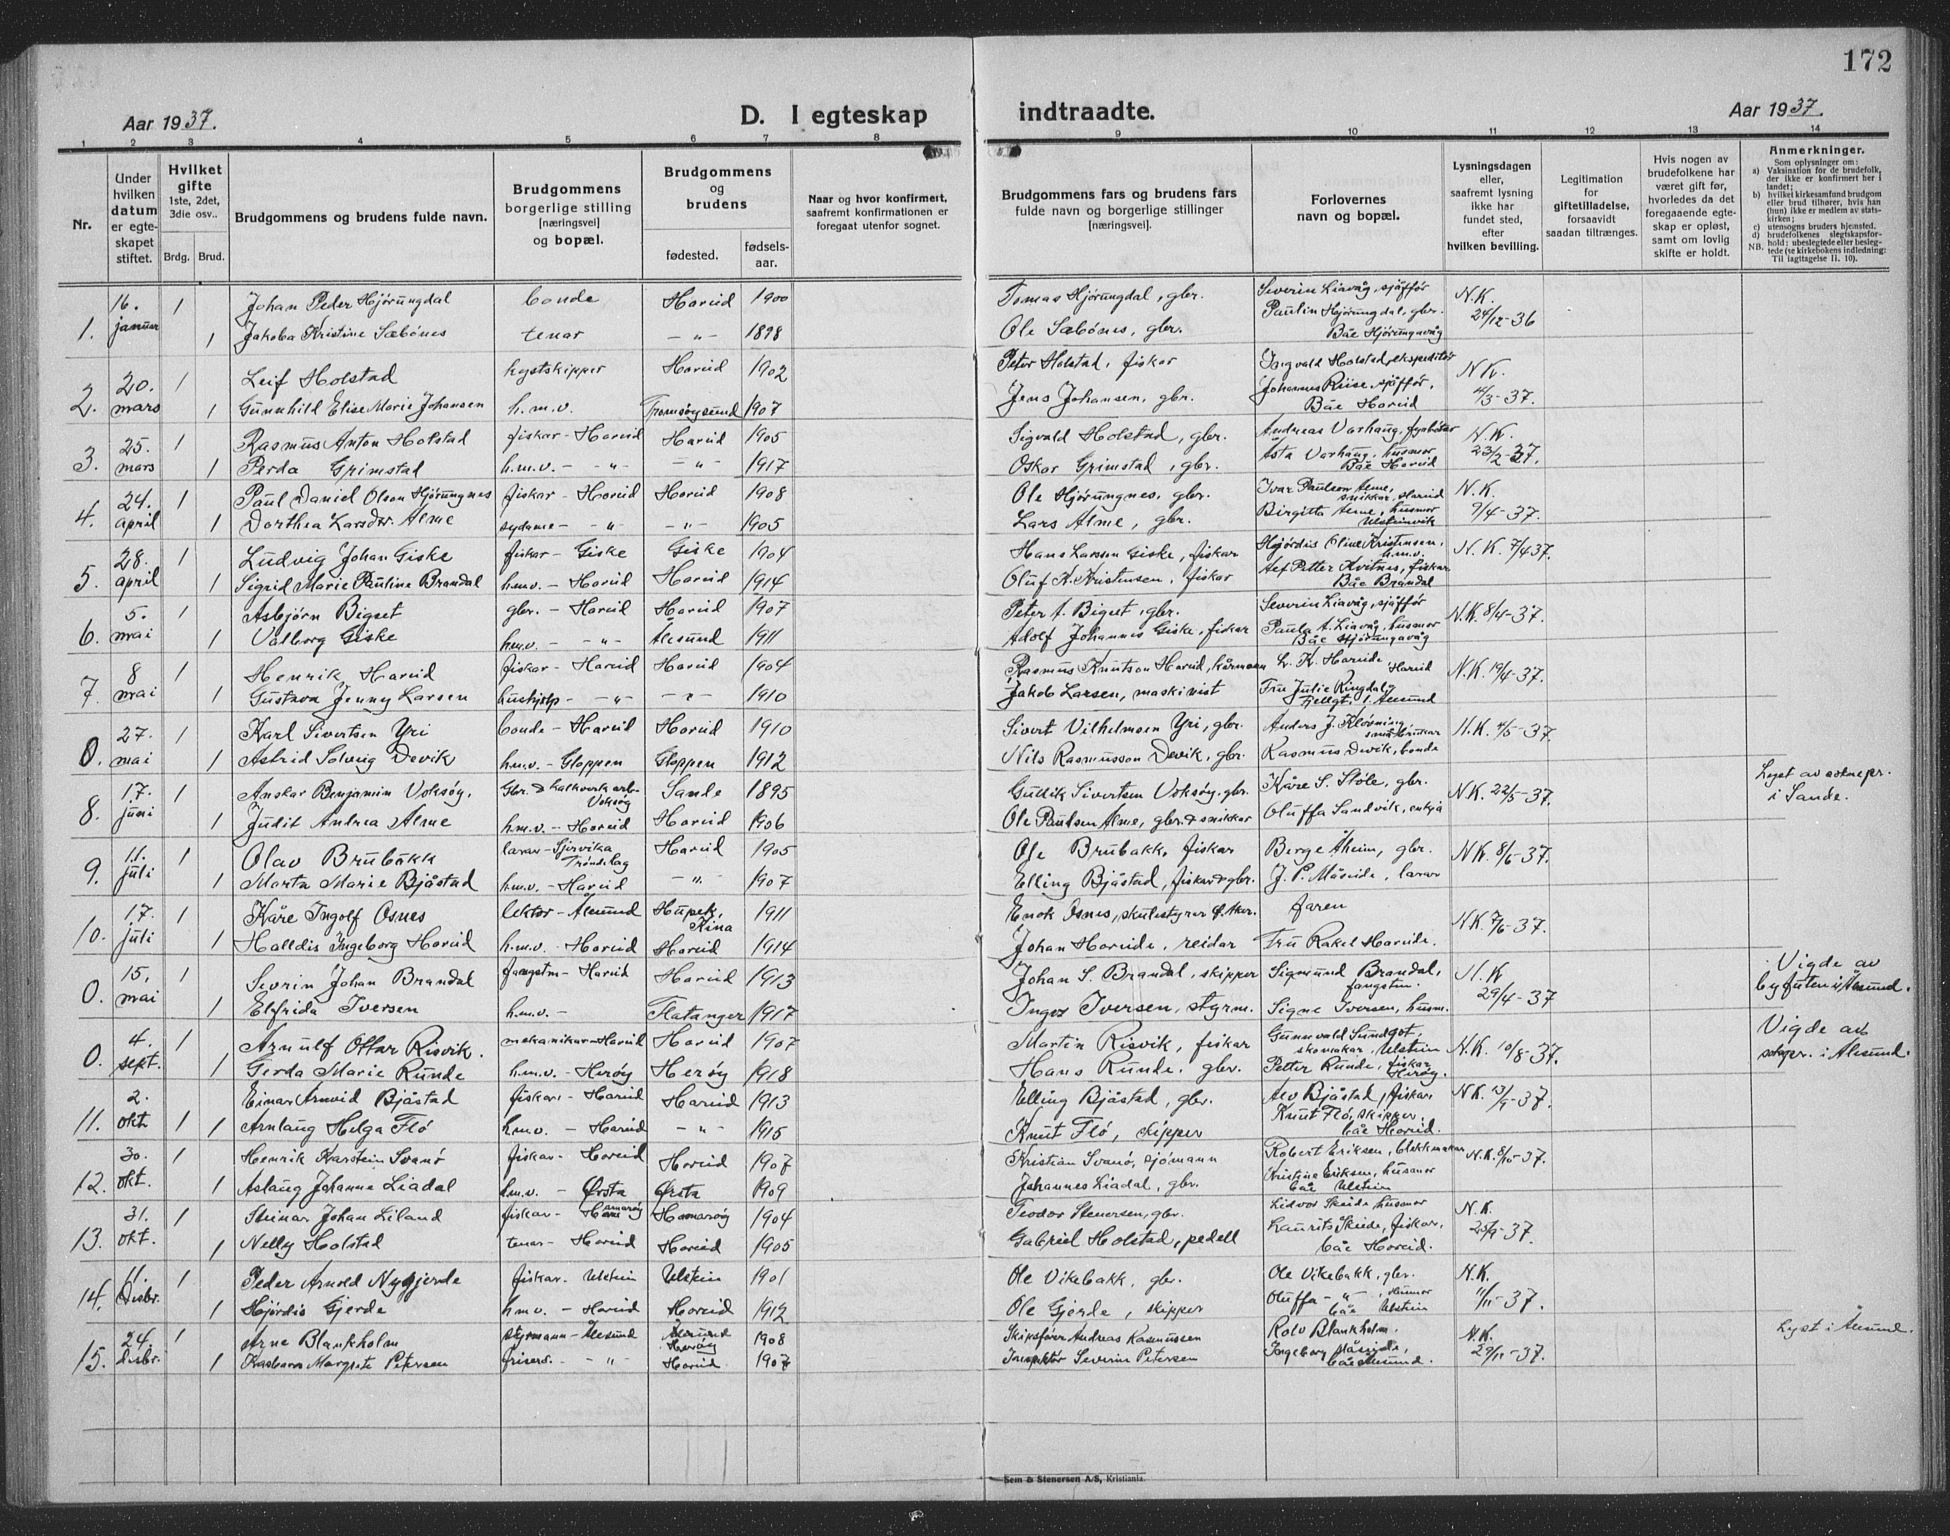 172
Aar 1937.
D. I egteskap indtraadte.
Aar 1937.
1 2 3 4 5 6 7 8 9 10 11 12 13 14
Nr.
Under hvilken datum er egteskapet stiftet.
Hvilket gifte 1ste, 2det, 3die osv..
Brdg. Brud.
Brudgommens og brudens fulde navn.
Brudgommens borgerlige stilling [næringsvei] og bopæl.
Brudgommens og brudens
fødested. fødselsaar.
Naar og hvor konfirmert, saafremt konfirmationen er foregaat utenfor sognet.
Brudgommens fars og brudens fars fulde navn og borgerlige stillinger [næringsvei].
Forlovernes navn og bopæl.
Lysningsdagen eller, saafremt lysning ikke har fundet sted, efter hvilken bevilling.
Legitimation for giftetilladelse, forsaavidt saadan tiltrænges.
Hvis nogen av brudefolkene har været gift før, hvorledes da det foregaaende egteskap er opløst, samt om lovlig skifte er holdt.
Anmerkninger.
Som oplysninger om:
a) Vaksination for de brudefolk, der ikke er konfirmert her i landet;
b) hvilket kirkesamfund brudgom eller brud tilhører, hvis han (hun) ikke er medlem av statskirken;
c) utensogns bruders hjemsted.
d) brudefolkenes slegtskapsforhold: ubeslegtede eller beslegtede (se kirkebokens indledning:
NB. Til iagttagelse II. 10).
1. 16. januar 1 Johan Peder Hjørungdal bonde Hareid 1900 Tomas Hjørungdal, gbr. Severin Liavåg, sjåffør N.K. 24/12-36
1 Jakoba Kristine Sæbønes tenar -"- 1898 Ole Sæbønes, gbr. Paulin Hjørungdal, gbr. Båe Hjørungavåg
2. 20. mars 1 Leif Holstad Hareid 1902 Peter Holstad, fiskar Ingvald Holstad, ekspeditør N.K. 4/3-37.
1 Gunnhild Elise Marie Johansen h.m.v. Tromsøysund 1907 Jens Johansen, gbr. Johannes Riise, sjåffør, Båe Hareid
3. 25. mars 1 Rasmus Anton Holstad fiskar - Hareid Hareid 1905 Sigvald Holstad, gbr. Andreas Varhaug, N.K. 23/2-37.
1 Perda Grimstad h.m.v. - -"- -"- 1917 Oskar Grimstad, gbr. Asta Varhaug, husmor Båe Hareid
4. 24. april 1 Paul Daniel Olson Hjørungnes fiskar - Hareid Hareid 1908 Ole Hjørungnes, gbr. Ivar Paulson Alme, snikkar, Hareid N.K. 9/4-37.
1 Dorthea Larsdtr. Alme sydame - -"- -"- 1905 Lars Alme, gbr. Birgitta Alme, husmor Ulsteinvik
5. 28. april 1 Ludvig Johan Giske fiskar - Giske Giske 1904 Hans Larssen Giske, fiskar Hjørdis Oline Kristensen, h.m.v. N.K. 7/4 37.
1 Sigrid Marie Pauline Brandal h.m.v. - Hareid Hareid 1914 Oluf A. Kristensen, fiskar Petter Kvitnes, fiskar Båe Brandal
6. 5. mai 1 Asbjørn Bigset gbr. - Hareid Hareid 1907 Peter A. Bigset, gbr. Severin Liavåg, sjåffør N.K. 8/4-37.
1 Valborg Giske h.m.v. - -"- Ålesund 1911 Adolf Johannes Giske, fiskar Paula A. Liavåg, husmor Båe Hjørungavåg
7 8 mai 1 Henrik Hareid fiskar - Hareid Hareid 1904 Rasmus Knutson Hareid, L. K. Hareide Hareid N.K. 19/4-37.
1 Gustava Jenny Larsen hushjelp - -"- -"- 1910 Jakob Larsen, maskinist Fru Julie Ringdal, Ålesund
0. 27. mai 1 Karl Sivertsen Yri bonde - Hareid Hareid 1910 Sivert Vilhelmsen Yri, gbr. Anders J. N.K. 4/5-37.
1 Astrid Solveig Devik h.m.v. - Gloppen Gloppen 1912 Nils Rasmusson Devik, gbr. Rasmus Devik, bonde
8. 17. juni 1 Anskar Benjamin Voksøy, Gbr. & kalkverk arb. Voksøy Sande 1895 Gullik Sivertsen Voksøy, gbr. Kåre S. Støle, gbr. N.K. 22/5-37. Lyst av soknepr. i Sande.
1 Judit Andrea Alme h.m.v. - Hareid Hareid 1906 Ole Paulsen Alme, gbr. & snikkar Oluffa Sandvik, enkja
9. 11. juli 1 Olav Brubakk lærar - Trøndelag Hareid 1905 Ole Brubakk, fiskar Berge Åheim, gbr. N.K. 8/6-37.
1 Marta Marie Bjåstad h.m.v. - Hareid -"- 1907 Elling Bjåstad, fiskar & gbr. J. P. Måseide, lærar
10. 17. juli 1 Kåre Ingolf Osnes lektor - Ålesund Hupeh, Kina 1911 Enok Osnes, skulestyrar Ø. Aker. Faren N.K. 7/6-37.
1 Halldis Ingeborg Hareid h.m.v. - Hareid Hareid 1914 Johan Hareide, reidar Fru Rakel Hareide.
0. 15. mai 1 Sevrin Johan Brandal fangstm - Hareid Hareid 1913 Johan S. Brandal, skipper Sigmund Brandal, fangstm. N.K 29/4-37 Vigde av byfuten i Ålesund.
1 Elfrida Iversen h.m.v. - Flatanger 1917 Iversen, styrm. Signe Iversen, husm.
0. 4. sept. 1 Arnulf Ottar Risvik. mekanikar - Hareid Hareid 1907 Martin Risvik, fiskar Gunnvald Sundgot, skomakar, Ulstein N.K. 10/8-37. Vigde av sokpr. i Ålesund.
1 Gerda Marie Runde h.m.v. - Herøy Herøy 1918 Hans Runde, gbr. Petter Runde, fiskar Herøy.
11. 2. okt 1 Einar Arnvid Bjåstad fiskar - Hareid Hareid 1913 Elling Bjåstad, gbr. Bjåstad, fiskar N.K. 13/9-37
1 Arnlaug Helga Flø h.m.v. - Hareid -"- 1915 Knut Flø, skipper Knut Flø, skipper, båe Hareid.
12. 30. okt. 1 Henrik Karstein Svanø fiskar - Hareid Hareid 1907 Kristian Svanø, sjømann Robert Eriksen, blikkmakar N.K. 8/10-37.
1 Aslaug Johanna Liadal h.m.v. - Ørsta Ørsta 1909 Johannes Liadal, gbr. Kristine Eriksen, husmor båe Ulstein
13. 31. okt. 1 Steinar Johan Liland fiskar - Hamarøy Hamarøy 1904 Teodor Stenersen, gbr. Lidvor Skeide husmor N.K. 25/9-37.
1 Nelly Holstad tenar - Hareid Hareid 1905 Gabriel Holstad, pedell Laurits Skeide, fiskar, båe Hareid.
14. 11. Desbr. 1 Peder Arnold Nygjerde fiskar - Ulstein Ulstein 1901 Ole Vikebakk, gbr. Ole Vikebakk, gbr. N.K. 11/11-37.
1 Hjørdis Gjerde h.m.v. - Hareid Hareid 1912 Ole Gjerde, skipper Oluffa -"-, husmor båe Ulstein
15. 24. desbr. 1 Arne Blankholm styrmann - Ålesund Herøy 1908 Skipsfører Andreas Rasmussen Rolv Blankholm, N.K. 29/11-37. Lyst i Ålesund.
1 Margrete Petersen frisørs. -"- Hareid 1907 Inspektør Severin Petersen Ingeborg Måseide, båe Ålesund.
Sem & Stenersen A/S, Kristiania.